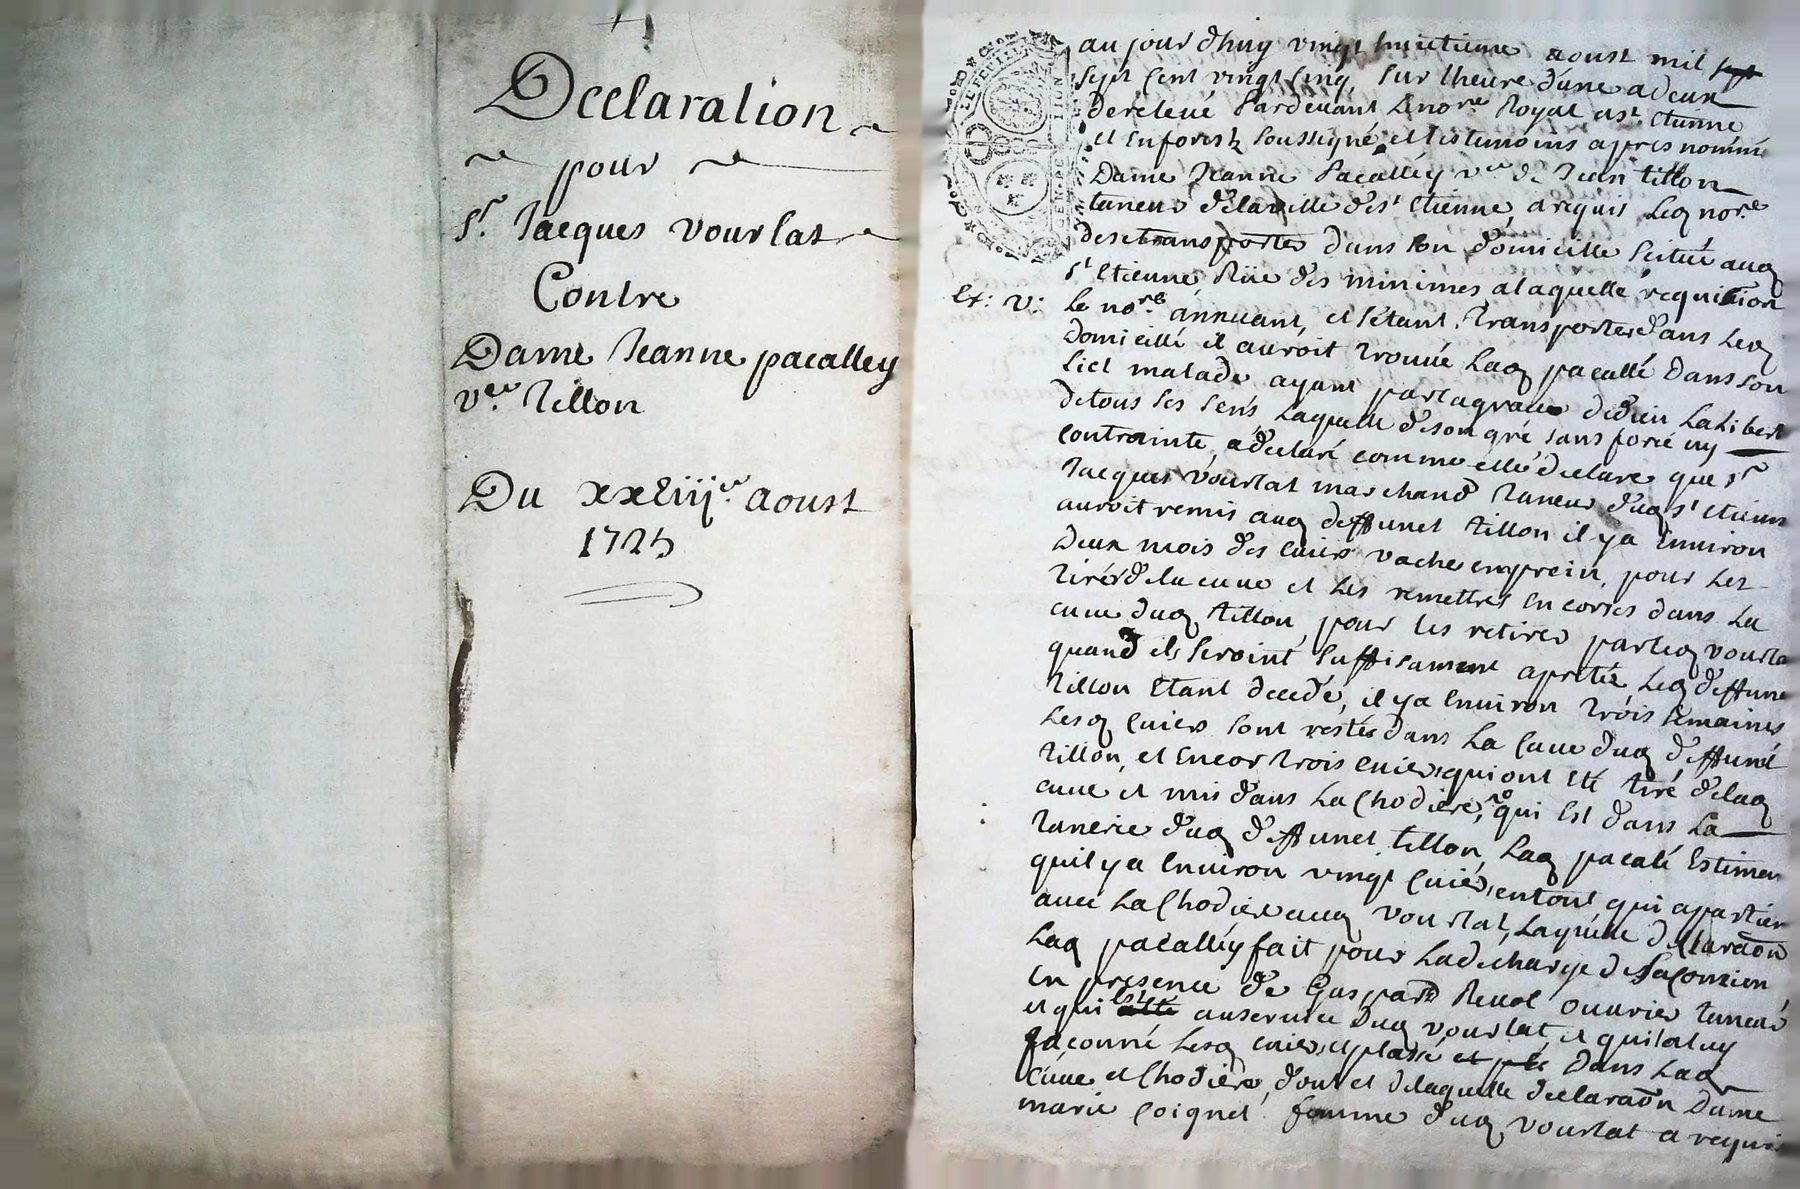 Declaration
pour
Sr. Jacques vourlat
Contre
Dame Jeanne pacalley
vve. Tillon
Du xxviije. aoust
1725
aujourdhuy vingt huictieme aoust mil
sept cent vingt cinq, sur lheure dune a deux
de relevé Pardevant Le nore Royal a st Etienne
et En forest soussigné et les temoins apres nommé
Dame Jeanne Pacalléy vve de Jean tillon
taneur de la ville de st Etienne, a requis Leq nore
de se transporter dans son domicille scitué auq
st Etienne, Rüe des minimes, a laquelle requisition
Et: v: Le nore annuant, et s'étant Transporter dans Leq
Domicillé il auroit trouvé Laq pacallé Dans son
lict malade ayant par la grace de dieu La Libert
de tous ses sens Laquelle de son gré sans force ny
contrainte, a déclaré comme elle declare que sr
Jacques vourlat marchand Taneur duq st Etienne
auroit remis auq deffunct tillon il y a Environ
Deux mois des cuirs vaches en prein, pour Les
Tirér de la cuve et Les remettre En corroi dans La
cuve duq tillon, pour les retirer par leq vourla
quand ils seroint suffisament apretés, Leq deffunc
Tillon Etant decedé, il y a Environ Trois semaines
Lesq Cuirs sont restés dans La Cuve duq deffunct
tillon, et Encor trois cuirs, qui ont Eté tiré de laq
cuve et mis dans La Chodiere, qui Est dans La
Tanerie duq deffunct tillon, Laq pacalé Estimen
quil y a Environ vingt Cuirs, en tout, qui apartien
avec La Chodiere auq vourlat, Laquelle declaraõn
Laq pacalléy fait pour La decharge de sa Consien
En presence de Gaspard Revol ouvrier taneur
et qui est au service duq vourlat, et qui a luy
façonné Lesq cuirs, et placé et Dans Laq
Cuve et Chodiere, dont et de laquelle declaraõn Dame
marie Coignet femme duq vourlat a requis